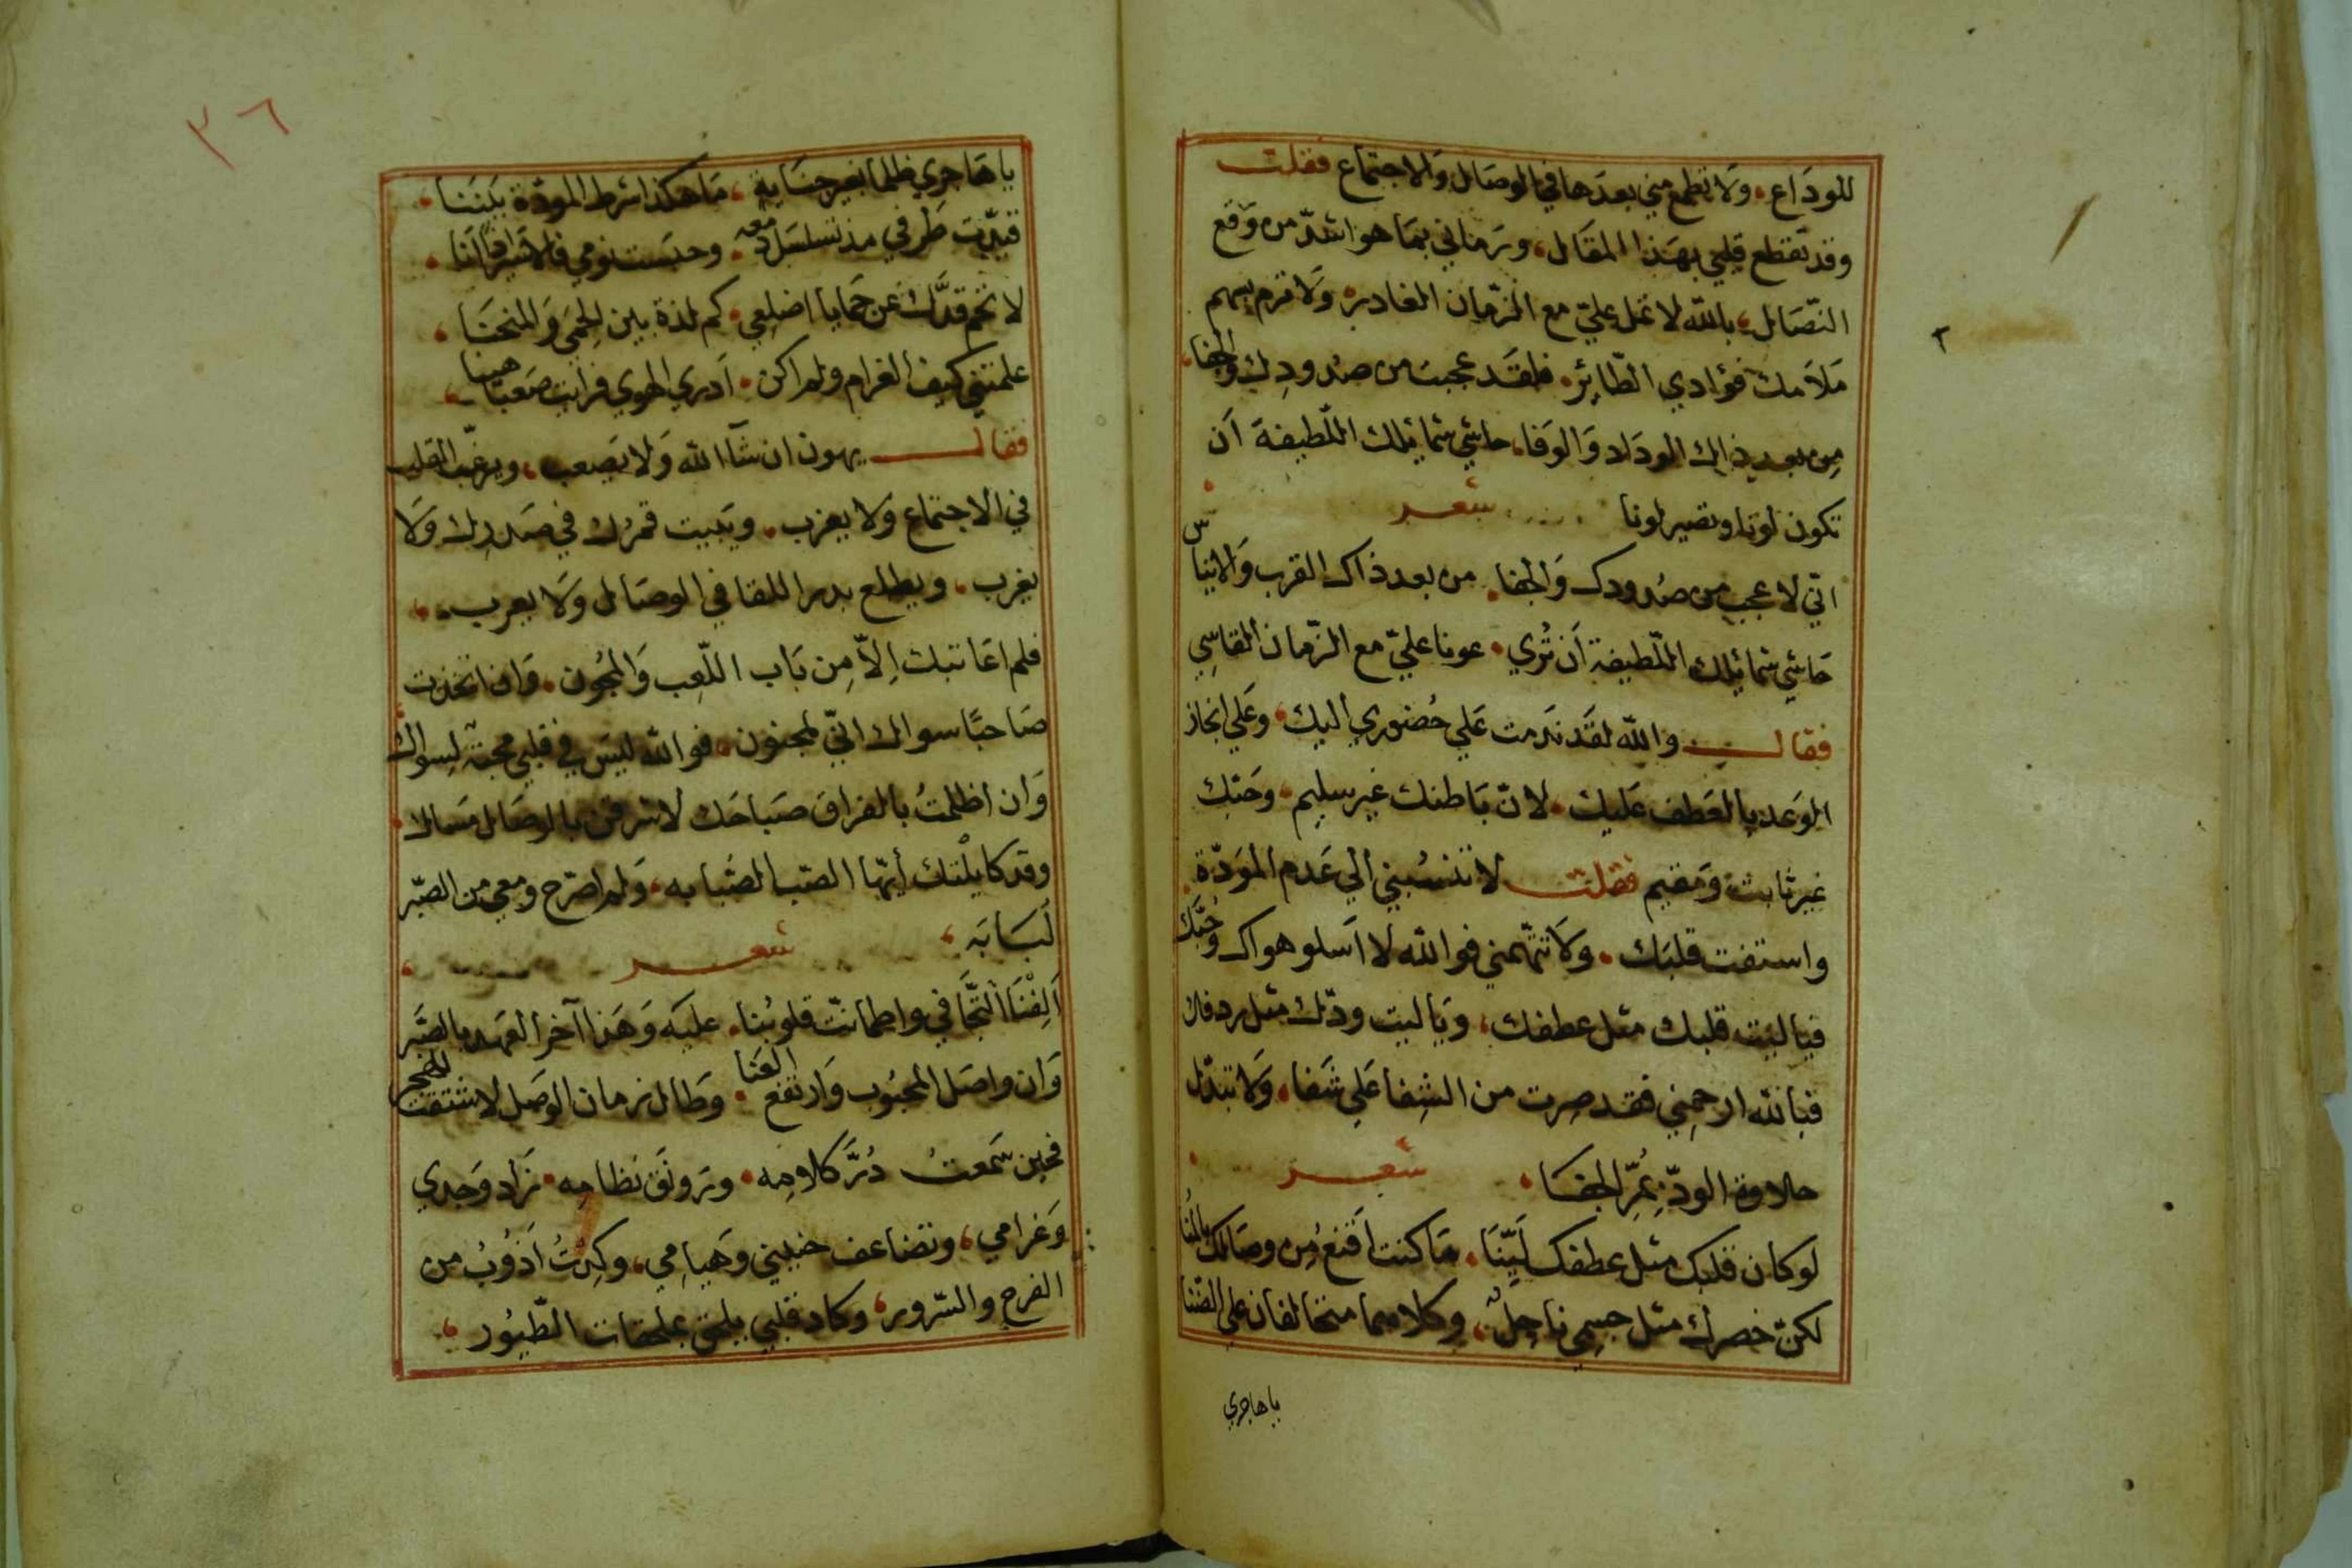 للودَاع، ولا تطمع مني بعدها في الوصَال والاجتماع فقلت
وقد تقطع قلبي بهَذا المقَال، ورَماني بمَا هو اشدّ من وَقع
النّصَال، بالله لا تمل عليّ مع الزّمان الغادر، وَلا ترم بسهم
مَلامك فؤادي الطّائر، فلقَد عجبت من صُدودِك والجفا،
مِن بعد ذاك الودَاد وَالوَفا، حاشي شمائلك اللّطيفة اَن
تكون لونا وتصير لونا شعر
انّي لا عجب من صُدودك وَالجفا، من بعد ذاك القرب وَالايناس
حَاشي شمائلك اللّطيفة اَن تُري، عونا عليّ مع الزّمان القاسِي
فقال والله لقَد نَدمت عَلي حُضوري اليك، وعَلي انجاز
الوَعد بالعَطف عَليك، لانّ بَاطنك غير سليم، وحَبّك
غير ثابت وَمقيم فقلت لا تنسُبني الي عَدم المَودّة،
واستفت قلبَك، وَلا تتّهمني فوالله لا اَسلو هواك وحُبّك
فيا ليت قلبك مثل عطفك، وَيا ليت ودّك مثل ردفك
فبالله ارحمِني فقد صِرت من الشِفا عَلي شَفا، وَلا تبَدّل
حلاوة الودّ بِمُرّ الجفَا، شعر
لو كان قلبك مثل عطفك لَيّنَا، مَا كنت اَقنعُ مِن وصَالك بالمُنا
لكنّ خصرك مثل جسمِي ناحِلٌ، وكلاهما متخالفان علي الضّنا
يا هاجري
٣٦
يا هَاجري ظلما بغير جنَايةٍ، مَا هكذا شرط المودّة بَيننَا،
قيدّت طَرفي مذ تسلسَل دمعه، وحبَست نومي فالاسَير انَا،
لا تحم قدَّك عَن حَمايا اضلعي، كم لذة بين الحمَي وَالمنحنَا،
علمتني كيف الغرام ولم اكن، اَدري الهوي فرايت صَعبا هينا
فقال يهون ان شآ الله وَلا يَصعب، ويرغّب القلب
في الاجتماع وَلا يعزب، ويَبيت قمرُك في صَدرِك وَلا
يغرب، ويطلع بدر اللقا في الوصَال وَلا يعرب،
فلم اعَاتبك اِلاّ مِن بَاب اللّعِب وَالمجُون، وَان اتخذت
صَاحبًا سواك انّي لمجنون، فوالله ليَس في قلبي محبّة لِسواك
وَان اظلمتُ بالفراق صَبَاحَك لاشرقن بالوصَال مَسَاك،
وقد كايلْتك أيّها الصّب الصّبابه، وَلم اصّرح ومعي من الصّبر
لُبَابَه، شعر
اَلِفْنَا التّجَافي واطمانّت قلوبُنا، عليَه وَهَذا آخر العهد بالصَبر
وَان واصَل المحبُوب وَارتفع العَنا، وَطال زمان الوَصل لاشتقت للهجر
فحين سَمعتُ دُرَّ كلامِه، ورَونَق نظامِه، زَاد وَجدي
وَغرامي، وتضاعف حنيني وَهيامِي، وكِدتُ اَذوُبُ من
الفرح والسّرور، وكاد قلبي يلحق بملحقات الطّيُور،